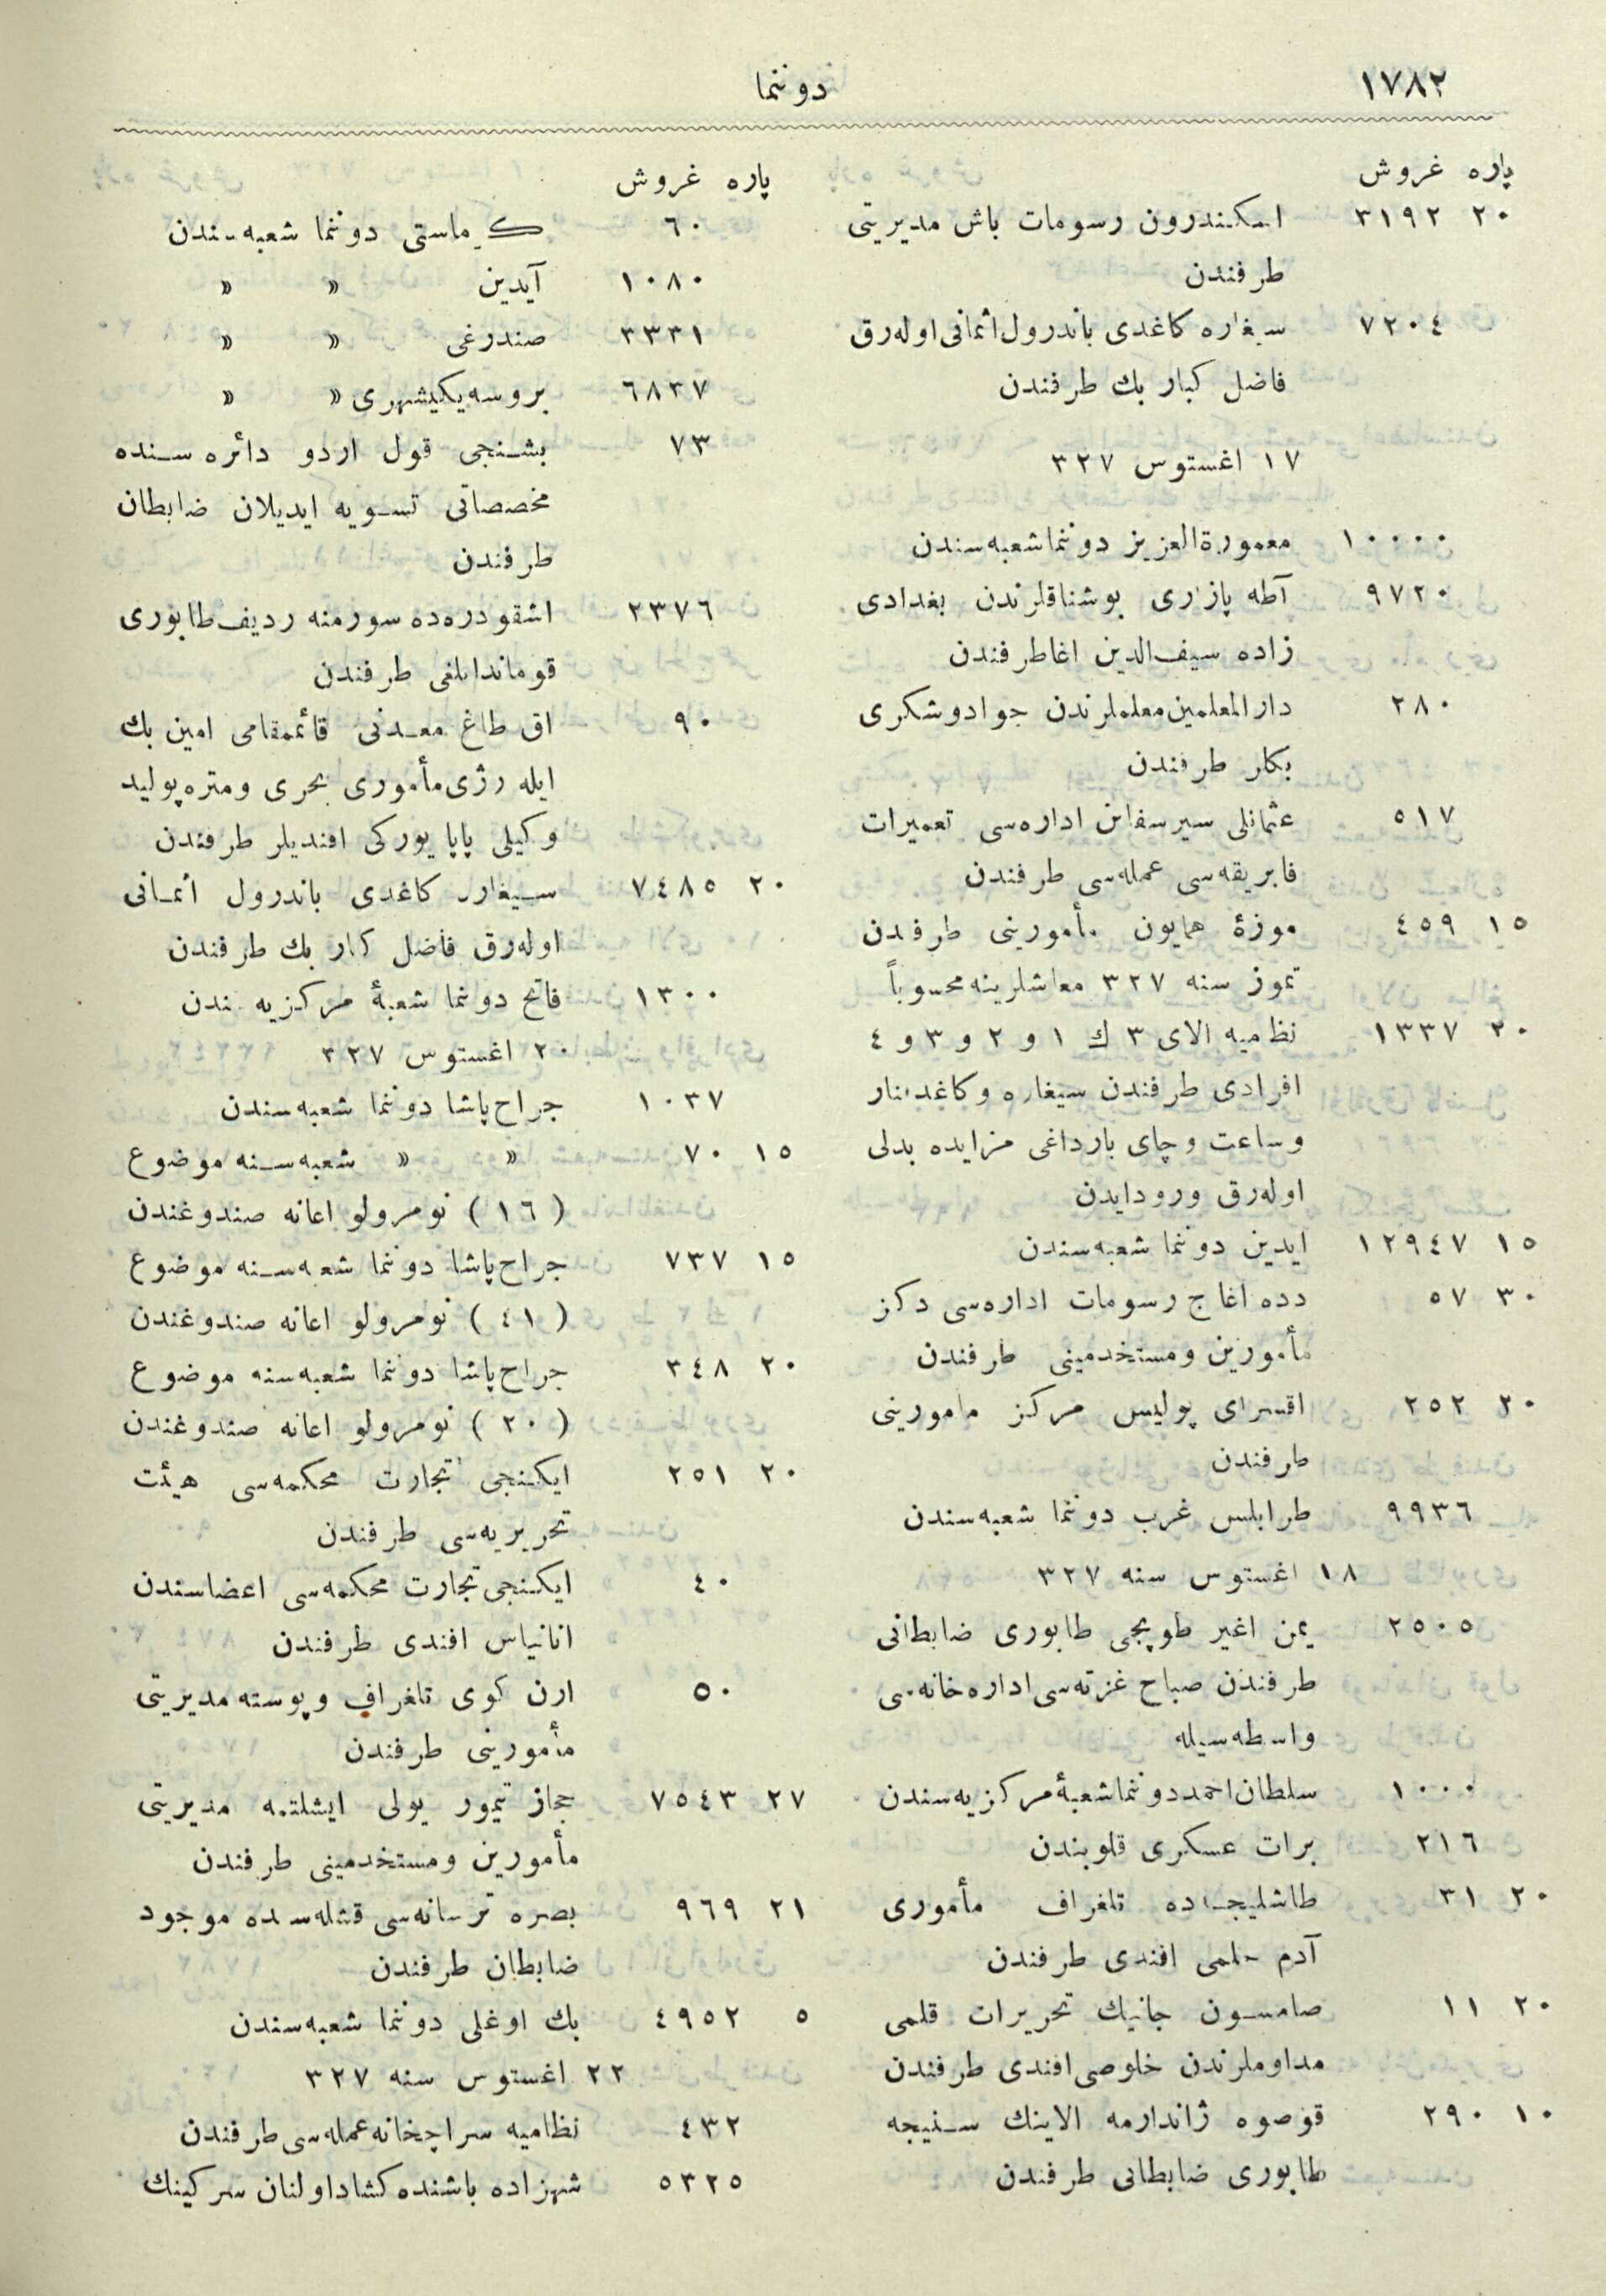 ١٧٨٢
دوننما
پاره غروش
٢٠ ٣١٩٢ اسكندرون رسومات باش مديريتى
طرفندن
٧٢٠٤ سيغاره كاغدى باندرول اثمانى اوله‌رق
فاضل كبار بك طرفندن
١٧ اغستوس ٣٢٧
١٠٠٠٠ معمورةالعزيز دوننما شعبه‌سندن
٩٧٢٠ آطه پازارى بوشناقلرندن بغدادى
زاده سيف‌الدين اغا طرفندن
٢٨٠ دارالمعلمين معلملرندن جواد و شكرى
بكلر طرفندن
٥١٧ عثمانلى سيرسفائن اداره‌سى تعميرات
فابريقه‌سى عمله‌سى طرفندن
١٥ ٤٥٩ موزۀ همايون مأمورينى طرفندن
تموز سنه ٣٢٧ معاشلرينه محسوباً
٢٠ ١٣٣٧ نظاميه الاى ٣ ك ١ و ٢ و ٣ و ٤
افرادى طرفندن سيغاره و كاغد بنار
و ساعت و چاى بارداغى مزايده بدلى
اوله‌رق ورود ايدن
١٥ ١٢٩٤٧ ايدين دوننما شعبه‌سندن
٣٠ ٥٧ دده اغاج رسومات اداره‌سى دكز
مأمورين و مستخدمينى طرفندن
٢٠ ٢٥٢ اقسراى پوليس مركز مامورينى
طرفندن
٩٩٣٦ طرابلس غرب دوننما شعبه‌سندن
١٨ اغستوس سنه ٣٢٧
٢٥٠٥ يمن اغير طوپجى طابورى ضابطانى
طرفندن صباح غزته‌سى اداره‌خانه‌سى
واسطه‌سيله
١٠٠٠ سلطان احمد دوننما شعبۀ مركزيه‌سندن
٢١٦ برات عسكرى قلوبندن
٢٠ ٣١ طاشليجه‌ده تلغراف مأمورى
آدم حلمى افندى طرفندن
٢٠ ١١ صامسون جانيك تحريرات قلمى
مداوملرندن خلوصى افندى طرفندن
١٠ ٢٩٠ قوصوه ژاندارمه الاينك سنيجه
طابورى ضابطانى طرفندن
پاره غروش
٦٠ كرماستى دوننما شعبه‌سندن
١٠٨٠ آيدين » »
٣٣٣١ صندرغى » »
٦٨٣٧ بروسه يكيشهرى » »
٧٣ بشنجى قول اردو دائره‌سنده
مخصصاتى تسويه ايديلان ضابطان
طرفندن
٢٣٧٦ اشقودره‌ده سورمنه رديف طابورى
قوماندانلغى طرفندن
٩٠ اق طاغ معدنى قائممقامى امين بك
ايله رژى مأمورى بحرى و متره‌پوليد
وكيلى پاپا يوركى افنديلر طرفندن
٢٠ ٧٤٨٥ سيغاره كاغدى باندرول أثمانى
اوله‌رق فاضل كبار بك طرفندن
١٣٠٠ فاتح دوننما شعبۀ مركزيه‌سندن
٢٠ اغستوس ٣٢٧
١٠٣٧ جراح پاشا دوننما شعبه‌سندن
١٥ ٧٠ » » شعبه‌سنه موضوع
( ١٦ ) نومرولو اعانه صندوغندن
١٥ ٧٣٧ جراح پاشا دوننما شعبه‌سنه موضوع
( ٤١ ) نومرولو اعانه صندوغندن
٢٠ ٣٤٨ جراح پاشا دوننما شعبه‌سنه موضوع
( ٢٠ ) نومرولو اعانه صندوغندن
٢٠ ٢٥١ ايكنجى تجارت محكمه‌سى هيئت
تحريريه‌سى طرفندن
٤٠ ايكنجى تجارت محكمه‌سى اعضاسندن
انانياس افندى طرفندن
٥٠ ارن كوى تلغراف و پوسته مديريتى
مأمورينى طرفندن
٢٧ ٧٥٤٣ حجاز تيمور يولى ايشلتمه مديريتى
مأمورين و مستخدمينى طرفندن
٢١ ٩٦٩ بصره ترسانه‌سى قشله‌سده موجود
ضابطان طرفندن
٥ ٤٩٥٢ بك اوغلى دوننما شعبه‌سندن
٢٢ اغستوس سنه ٣٢٧
٤٣٢ نظاميه سراجخانه عمله‌سى طرفندن
٥٣٢٥ شهزاده باشنده كشاد اولنان سركينك